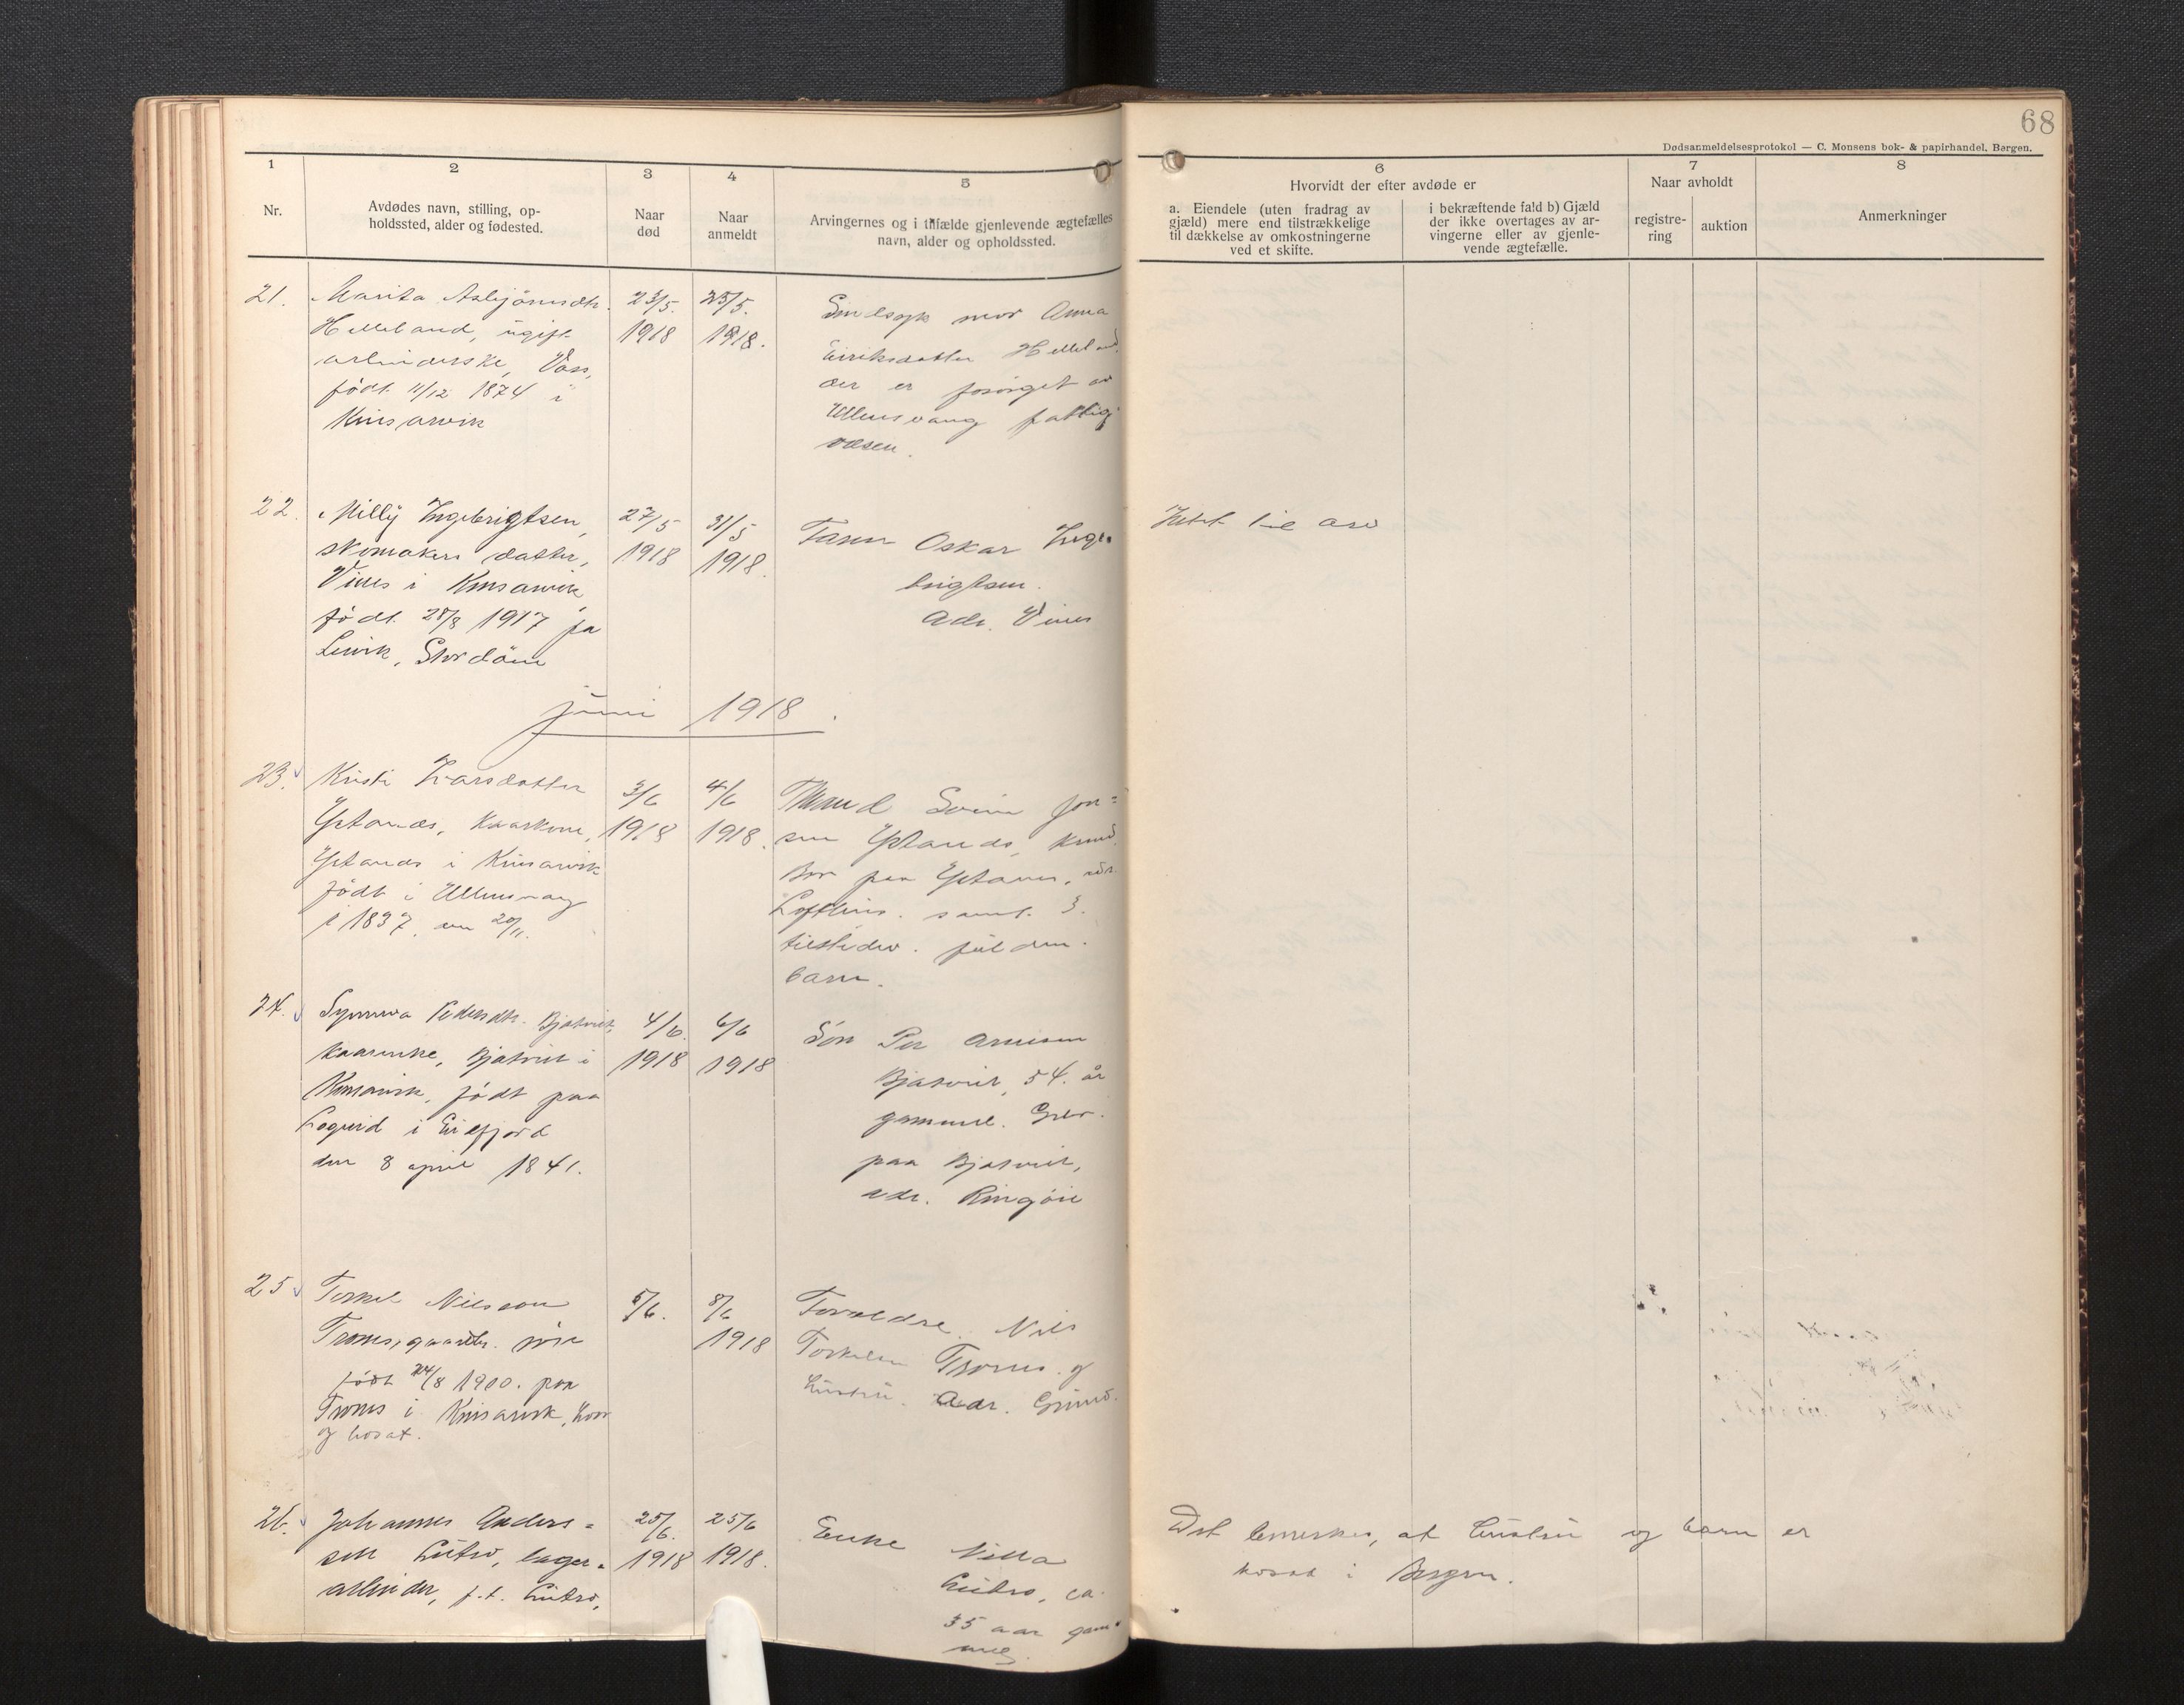 68
Dødsanmeldelsesprotokol — C. Monsens bok- & papirhandel, Bergen.
1
2
3
4
5
6
7
8
Nr.
Avdødes navn, stilling, op-
holdssted, alder og fødested.
Naar
død
Naar
anmeldt
Arvingernes og i tilfælde gjenlevende ægtefælles
navn, alder og opholdssted.
Hvorvidt der efter avdøde er
a. Eiendele (uten fradrag av
gjæld) mere end tilstrækkelige
til dækkelse av omkostningerne
ved et skifte.
i bekræftende fald b) Gjæld
der ikke overtages av ar-
vingerne eller av gjenle-
vende ægtefælle.
Naar avholdt
registre-
ring
auktion
Anmerkninger
21.
Marita Asbjørnsdtr.
Helleland, ugift
arbeiderske, Voss,
født 11/12 1874 i
Kinsarvik
23/5.
1918
25/5.
1918.
mor Anna
Eiriksdatter Helleland
der er forsørget av
Ullensvang fattig-
væsen.
22.
Milly Ingebrigtsen,
skomakers datter,
Vines i Kinsarvik
født 28/8 1917 på
Leirvik, Stordøen
27/5
1918
31/5
1918.
Faren Oskar Inge-
brigtsen.
Adr. Vines
Intet til arv
juni 1918.
23.
Kristi Ivarsdatter
Ystanæs, kaarkone,
Ystanæs i Kinsarvik
født i Ullensvang
i 1837, den 20/11.
3/6
1918
4/6
1918.
Mand Svein Jon=
sen Ystanæs,
Bor paa Ystanes, adr.
Lofthus. samt 3
barn.
24.
Synneva Pedersdtr. Bjotveit,
kaarenke, Bjotveit i
Kinsarvik, født paa
Legreid i Eidfjord
den 8 april 1841.
4/6.
1918
6/6
1918
Søn Per Arnesen
Bjotveit, 54. år
gammel. Gbr.
paa Bjotveit,
adr. Ringøie
25
Torkel Nilsson
Tronæs, gaardbr. søn
født 24/8 1900. paa
Tronæs i Kinsarvik, hvor
og bosat.
5/6.
8/6
1918
Foreldre. Nils
Torkelsen Tronæs. og
hustru. Adr. Grimo.
26.
Johannes Anders=
sen Lutro, lager=
arbeider, f.t. Lutro,
25/6.
1918
25/6
1918.
Enke Nilla
Lutro, ca.
35 aar gam-
mel.
Det bemerkes, at hustru og barn er
bosat i Bergen.